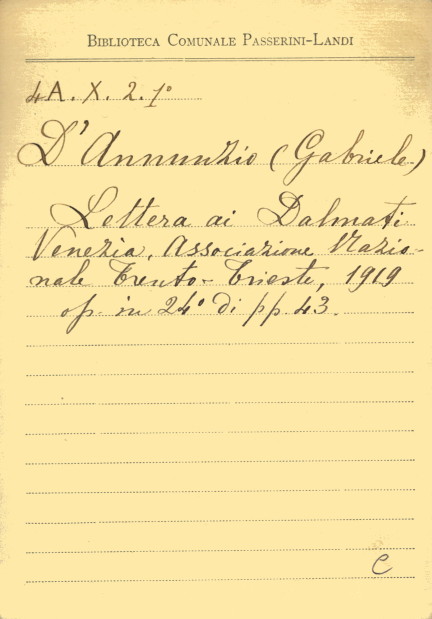 BIBLIOTECA COMUNALE PASSERINI-LANDI
4A. X. 2. 1º
D'Annunzio (Gabriele)
Lettera ai Dalmati
Venezia, Associazione Nazio-
nale Trento-Trieste, 1919
op. in 24º di pp. 43.
C